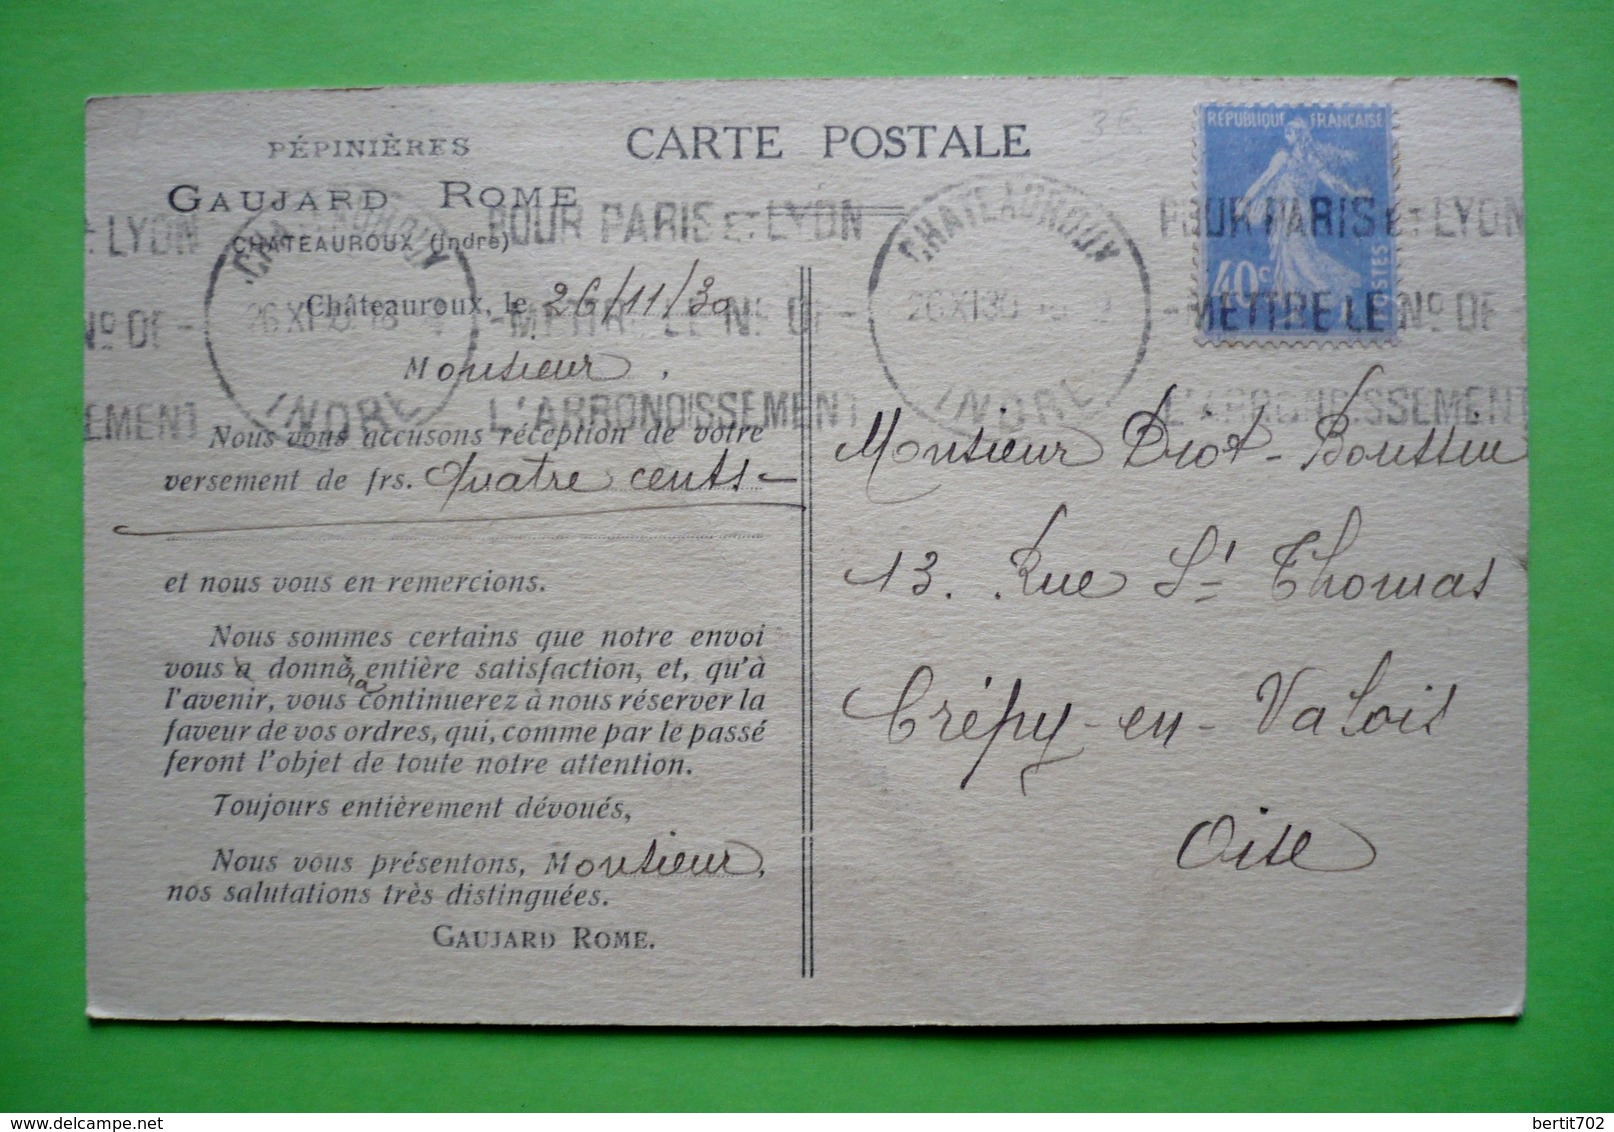 PÉPINIÈRES
GAUJARD ROME
CHATEAUROUX (Indre)
CARTE POSTALE
3E
RÉPUBLIQUE FRANÇAISE
40c
POSTES
CHATEAUROUX
26 XI 30
INDRE
POUR PARIS ET LYON
-METTRE LE No DE-
L'ARRONDISSEMENT
CHATEAUROUX
26 XI 30
INDRE
POUR PARIS ET LYON
-METTRE LE No DE-
L'ARRONDISSEMENT
ET LYON
No DE-
EMENT
Châteauroux, le 26/11/30
Monsieur,
Nous vous accusons réception de votre
versement de frs. Quatre cents -
et nous vous en remercions.
Nous sommes certains que notre envoi
vous a donné entière satisfaction, et, qu'à
l'avenir, vous continuerez à nous réserver la
faveur de vos ordres, qui, comme par le passé
feront l'objet de toute notre attention.
Toujours entièrement dévoués,
Nous vous présentons, Monsieur,
nos salutations très distinguées.
GAUJARD ROME.
Monsieur Diot-Boussin
13. Rue St Thomas
Crépy-en-Valois
Oise
bertit702